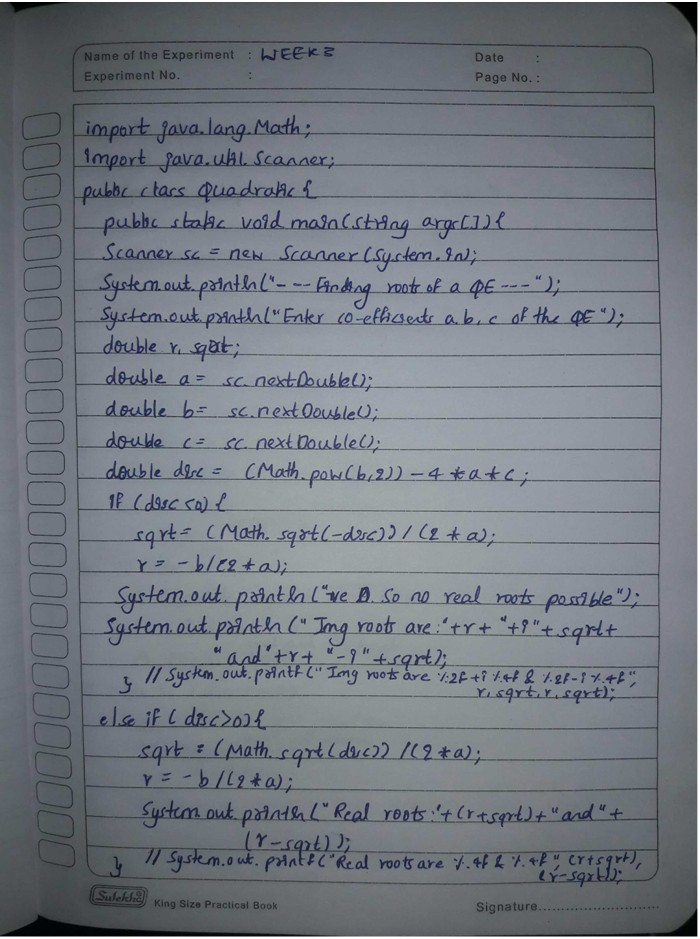 Name of the Experiment : WEEK 3
Date :
Experiment No. :
Page No. :
import java.lang.Math;
import java.util.Scanner;
public class Quadratic {
public static void main(String args[]){
Scanner sc = new Scanner(System.in);
System.out.println("--- Finding roots of a QE ---");
System.out.println("Enter co-efficients a, b, c of the QE");
double r, sqrt;
double a = sc.nextDouble();
double b = sc.nextDouble();
double c = sc.nextDouble();
double disc = (Math.pow(b,2)) - 4 * a * c ;
if (disc <0) {
sqrt = (Math.sqrt(-disc)) / (2 * a);
r = -b/(2*a);
System.out.println("-ve D. So no real roots possible");
System.out.println(" Img roots are:"+r+ "+i"+sqrt+
" and"+r+ "-i"+sqrt);
} // System.out.printf(" Img roots are %.2f +i %.4f & %.2f-i %.4f",
r, sqrt, r, sqrt);
else if (disc>0){
sqrt = (Math.sqrt(disc)) /(2*a);
r = -b /(2*a);
System.out.println (" Real roots:"+(r+sqrt)+"and"+
(r-sqrt));
} // System.out.printf("Real roots are %.4f & %.4f", (r+sqrt),
(r-sqrt));
Sulekh
King Size Practical Book
Signature..............................